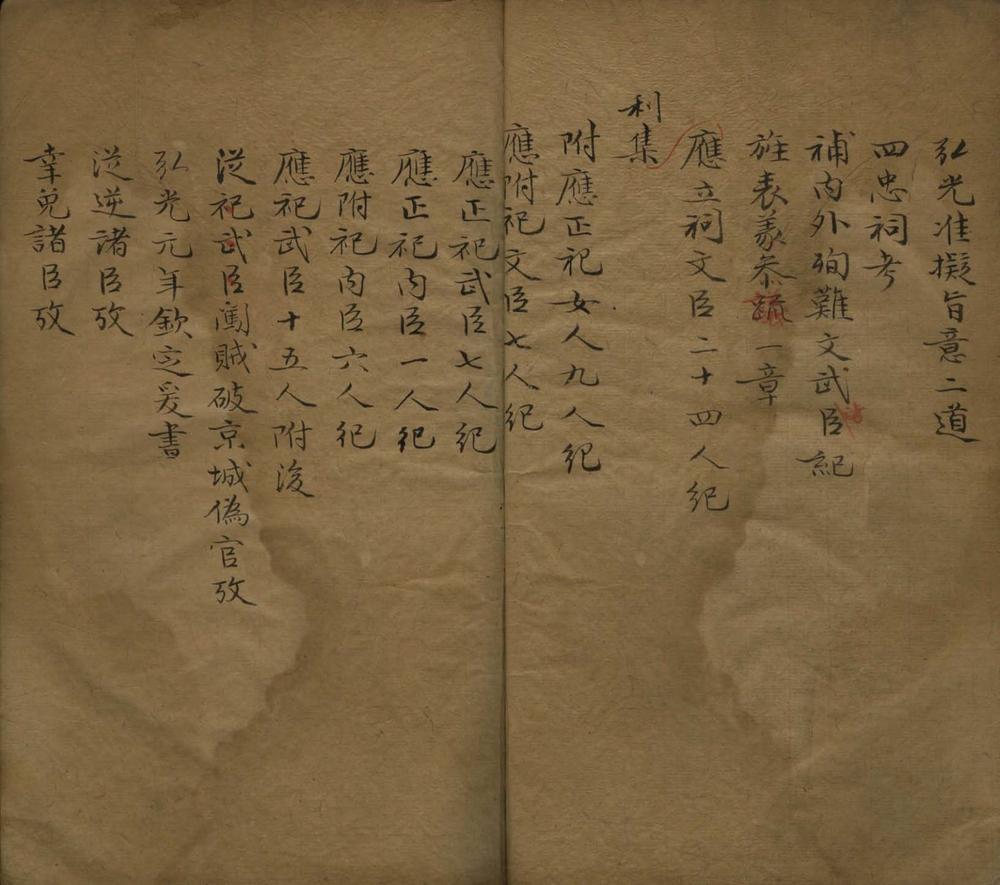 弘光准擬旨意二道
四忠祠考
補內外殉難文武臣紀
旌表義叅疏一章
應立祠文臣二十四人紀
利集
附應正祀女人九人紀
應附祀文臣七人紀
應正祀武臣七人紀
應正祀內臣一人紀
應附祀內臣六人紀
應祀武臣十五人附後
從祀武臣闖賊破京城偽官攷
弘光元年欽定爰書
從逆諸臣攷
幸免諸臣攷